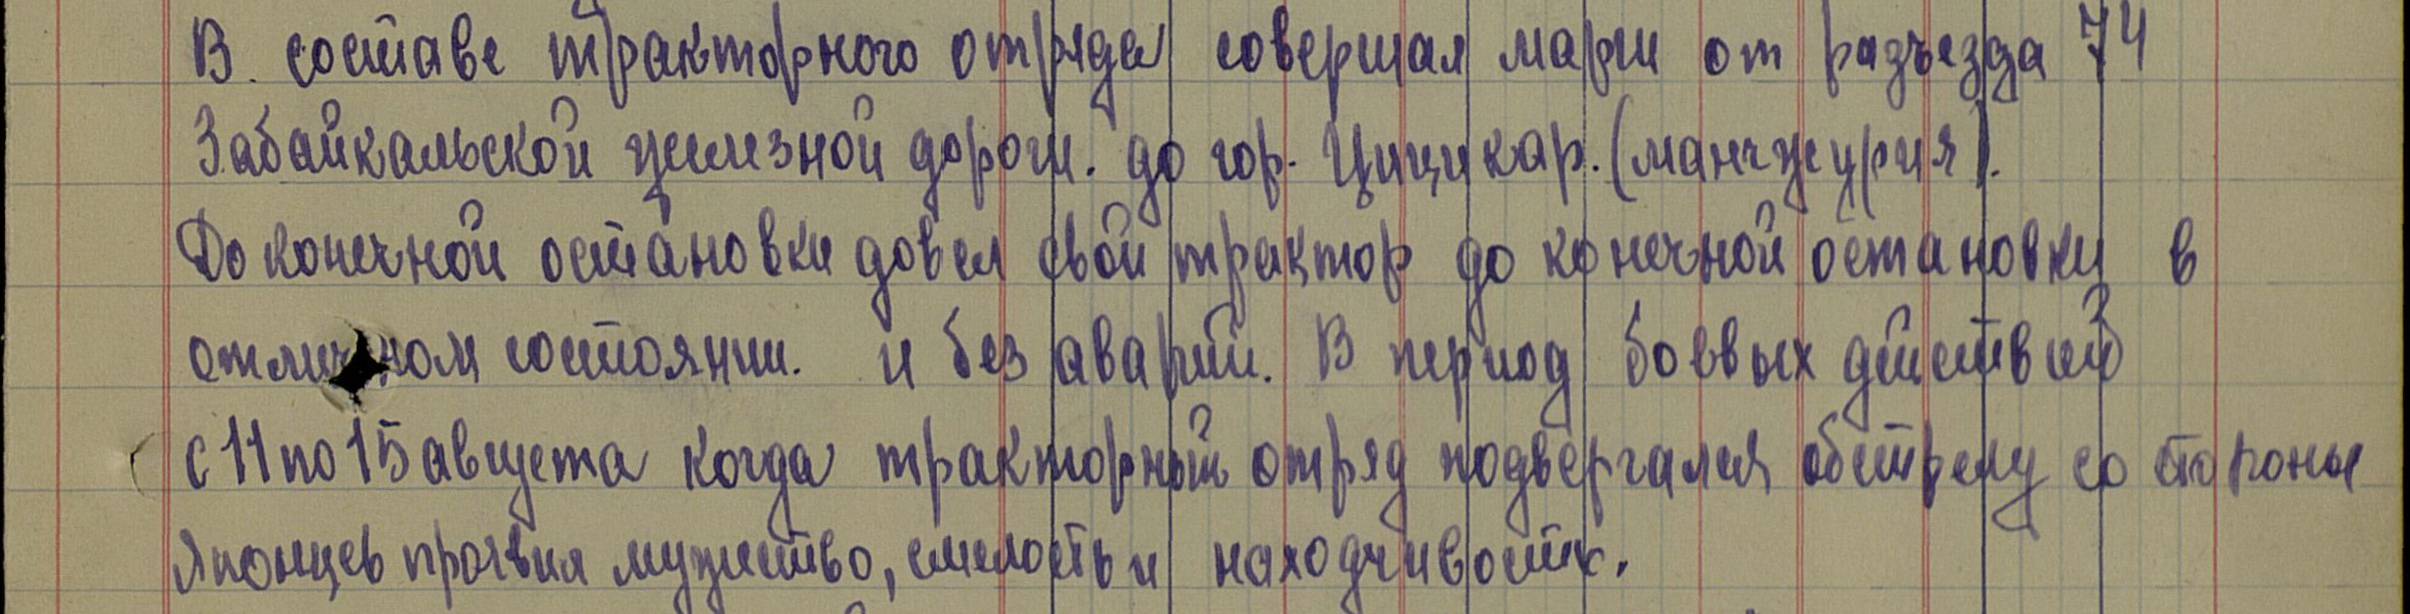 В. составе тракторного отряда совершал марш от разъезда 74
Забайкальской железной дороги. до гор. Цицикар. (манчжурия).
До конечной остановки довел свой трактор до конечной остановки в
отличном состоянии. и без аварий. В период боевых действий
с 11 по 15 августа когда тракторный отряд подвергался обстрелу со стороны
Японцев проявил мужество, смелость и находчивость.